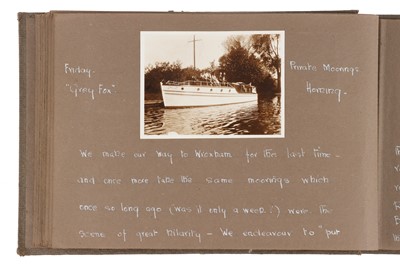 Friday -
"Grey Fox"
Private Moorings
Horning -
We make our way to Wroxham for the last time -
and once more take the same moorings which
once so long ago (was it only a week?) were the
scene of great hilarity - We endeavour to "put